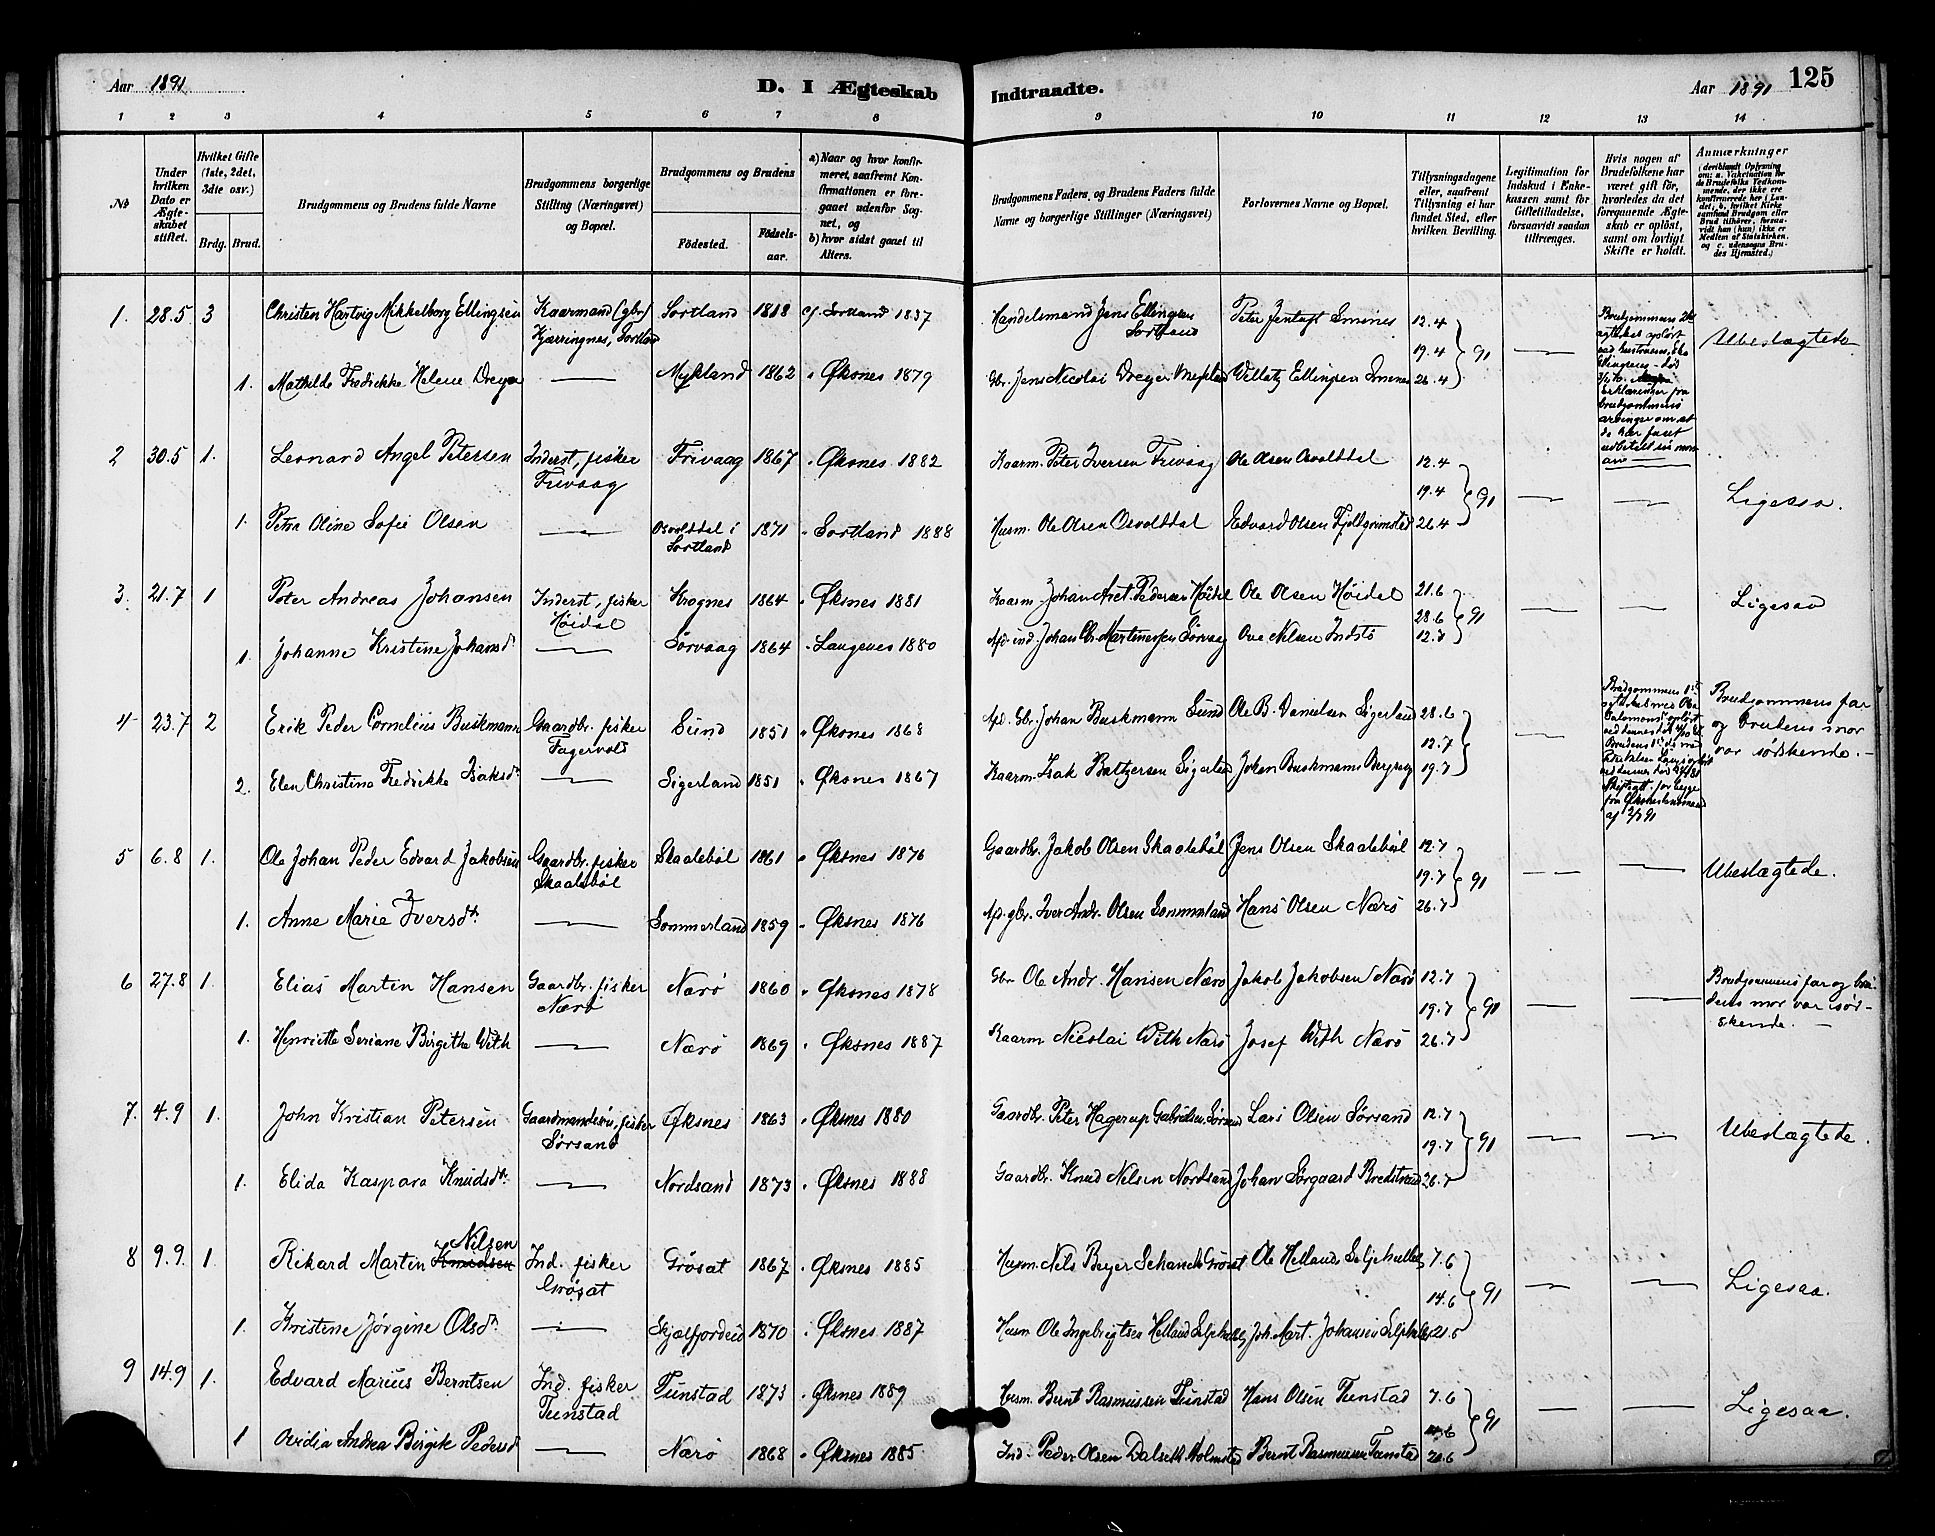 Aar 1891
D. I Ægteskab Indtraadte.
Aar 1891 125
1 2 3 4 5 6 7 8 9 10 11 12 13 14
No
Under hvilken Dato er Ægteskabet stiftet.
Hvilket Gifte (1ste, 2det, 3die osv.)
Brdg. Brud.
Brudgommens og Brudens fulde Navne
Brudgommens borgerlige Stilling (Næringsvei) og Bopæl.
Brudgommens og Brudens
Födested.
Födsels-aar.
a) Naar og hvor konfirmeret, saafremt Konfirmationen er foregaaet udenfor Sognet, og
b) hvor sidst gaaet til Alters.
Brudgommens Faders, og Brudens Faders fulde Navne og borgerlige Stillinger (Næringsvei)
Forlovernes Navne og Bopæl.
Tillysningsdagene eller, saafremt Tillysning ei har fundet Sted, efter hvilken Bevilling.
Legitimation for Indskud i Enkekassen samt for Giftetilladelse, forsaavidt saadan tiltrænges.
Hvis nogen af Brudefolkene har været gift för, hvorledes da det foregaaende Ægteskab er oplöst, samt om lovligt Skifte er holdt.
Anmærkninger (deriblandt Oplysning om: a. Vakcination for de Brudefolks Vedkommende, der ikke ere konfirmerede her i Landet, b. hvilket Kirkesamfund Brudgom eller Brud tilhörer, forsaavidt han (hun) ikke er Medlem af Statskirken, og c. udensogns Brudes Hjemsted.)
1. 28.5 3 Christen Hartvig Mikkelborg Ellingsen Kaarmand (gbr) Kjærringnes, Sortland Sortland 1818 cf. Sortland 1837 Handelsmand Jens Ellingsen Sortland Peter Jentoft Smines 12.4 19.4 26.4 } 91 — Ubeslægtede
1. Mathilde Fredrikke Helene Dreyer — Mykland 1862 " Øksnes 1879 Gbr. Jens Nicolai Dreyer Ellingsen Smines
Brudgommens 2det ægteskab opløst ved hustruens
2 30.5 1. Leonard Angel Petersen Inderst, fisker Frivaag Frivaag 1867 " Øksnes 1882 Kaarm. Peter Iversen Frivaag Ole Olsen Osvolddal 12.4 19.4 26.4 } 91 — — Ligesaa.
1. Petra Oline Sofie Olsen — Osvolddal i Sortland 1871 " Sortland 1888 Husm. Ole Olsen Osvolddal Edvard Olsen
3. 21.7 1 Peter Andreas Johansen Inderst, fisker Høidal Krognes 1864 " Øksnes 1881 Kaarm. Johan Aret. Pedersen Høidal Ole Olsen Høidal 21.6 28.6 12.7 } 91 — — Ligesaa
1. Johanne Kristine Johansdr. — Sørvaag 1864 " Langenes 1880 Afd. ind. Johan Chr. Martinussen Sørvaag Ove Nilsen Indstø
4 23.7 2 Erik Peder Cornelius Buskmann Gaardbr. fisker Fagervold Sund 1851 " Øksnes 1868 Afd. Gbr. Johan Buskmann Sund Ole B. Danielsen Sigerland 28.6 12.7 19.7 } — Brudgommens far og brudens mor var søskende. –
2. Elen Christine Fredrikke Isaksdr. — Sigerland 1851 " Øksnes 1867 Kaarm. Isak Baltzersen Sigerland Johan Buskmann
5 6.8 1. Ole Johan Peder Edvard Jakobsen Gaardbr. fisker Skaalebøl Skaalebøl 1861 " Øksnes 1876 Gaardbr. Jakob Olsen Skaalebøl Jens Olsen Skaalebøl 12.7 19.7 26.7 } 91 — — Ubeslægtede.
1. Anne Marie Iversdr. — Sommerland 1859 " Øksnes 1876 Afd. gbr. Iver Andr. Olsen Sommerland Hans Olsen Nærø
6 27.8 1. Elias Martin Hansen Gaardbr. fisker Nærø Nærø 1860 " Øksnes 1878 Gbr Ole Andr. Hansen Nærø Jakob Jakobsen Nærø 12.7 19.7 26.7 } 91 — — Brudgommens far og brudens mor var søskende. –
1. Henriette Seriane Birgithe With — Nærø 1869 " Øksnes 1887 Kaarm Nicolai With Nærø Josef With Nærø
7. 4.9 1. John Kristian Petersen Gaardmandssøn, fisker Sørsand Øksnes 1863 " Øksnes 1880 Gaardbr. Peter Hagerup Gabrielsen Sørsand Lars Olsen Sørsand 12.7 19.7 26.7 } 91 — — Ubeslægtede.
1. Elida Kaspara Knudsdr. — Nordsand 1873 " Øksnes 1888 Gaardbr. Knud Nilsen Nordsand Johan Sørgaard Bredstrand
8 9.9. 1. Rikard Martin Knudsen Nilsen Ind. fisker Grøsæt Grøsæt 1867 " Øksnes 1885 Husm. Nils Beyer Schanch Grøsæt Ole Helland 7.6 14.6 21.6 } 91 — — Ligesaa.
1. Kristine Jørgine Olsdr. — Skjelfjordeid 1870 " Øksnes 1887 Husm Ole Ingebrigtsen Helland Joh. Mart. Johansen
9 14.9 1. Edvard Marius Berntsen Ind. fisker Tunstad Tunstad 1873 " Øksnes 1889 Husm. Bernt Rasmussen Tunstad Hans Olsen Tunstad 7.6 14.6 21.6 } 91 — — Ligesaa.
1 Ovidia Andrea Birgite Pedersdr — Nærø 1868 " Øksnes 1885 Ind. Peder Olsen Holmstad Bernt Rasmussen Tunstad